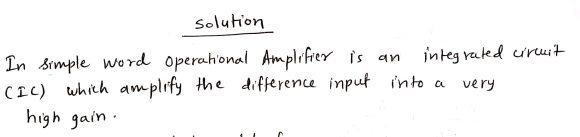 Solution
In simple word operational Amplifier is an integrated circuit
(IC) which amplify the difference input into a very
high gain.